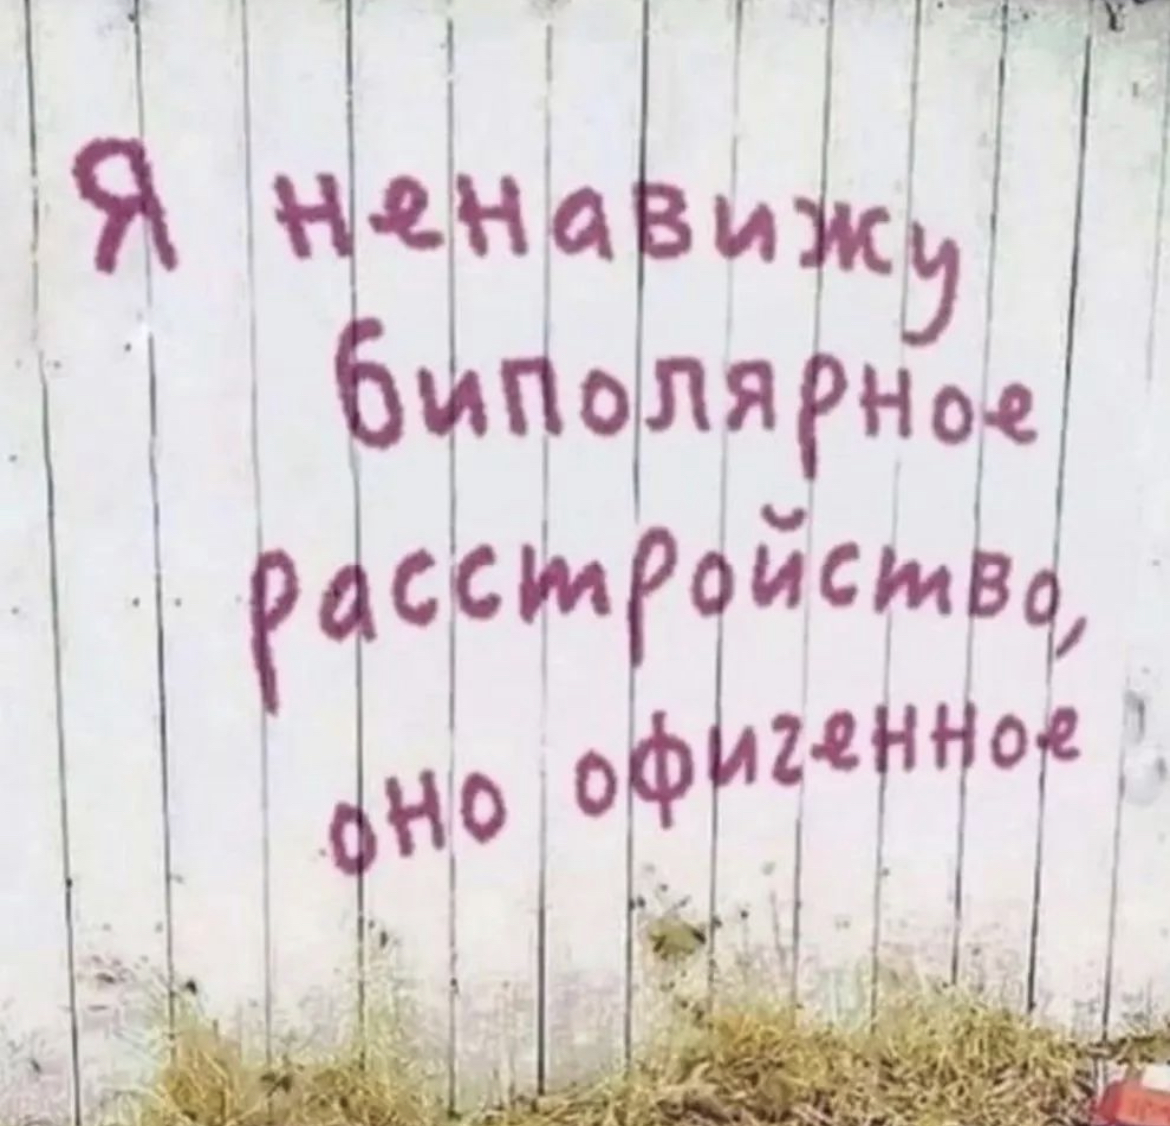 Я ненавижу
биполярное
расстройство,
оно офигенное